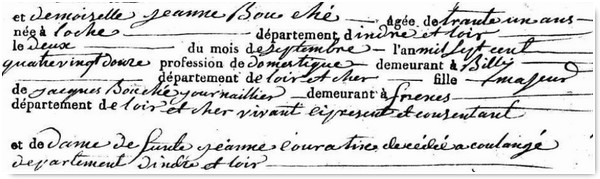 et demoiselle jeanne Bouché âgée de trante un ans
née à loche département d'indre et loir
le deux du mois de septembre l'an mil sept cent
quatre vingt douze profession de domestique demeurant à Billy
département de loir et cher fille majeur
de jacques Bouché journaillier demeurant à fresnes
département de loir et cher vivant ici present et consentant
et de dame jeanne décédée a coulangé
departement d'indre et loir